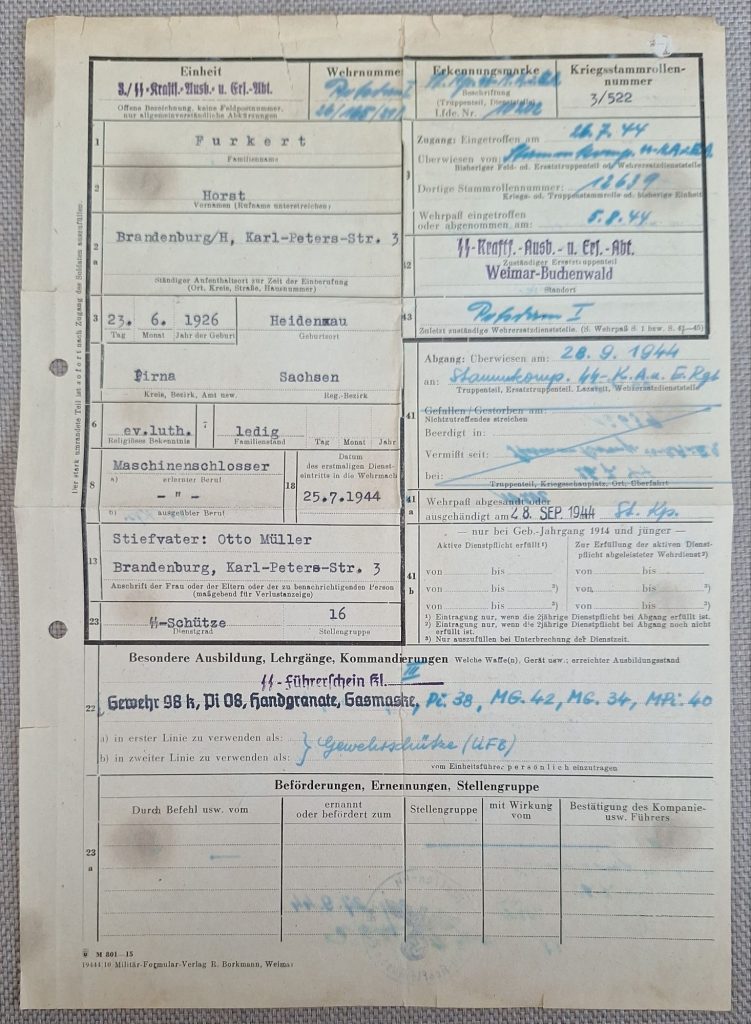 Einheit
3./SS-Kraftf.-Ausb.- u. Ers.-Abt.
Offene Bezeichnung, keine Feldpostnummer,
nur allgemeinverständliche Abkürzungen
Wehrnummer
Potsdam I
26/
Erkennungsmarke
Beschriftung
(Truppenteil, Dienststelle)
Lfde. Nr.
Kriegsstammrollen-
nummer
3/522
1
Furkert
Familienname
2
Horst
Vornamen (Rufname unterstreichen)
2
a
Brandenburg/H, Karl-Peters-Str. 3
Ständiger Aufenthaltsort zur Zeit der Einberufung
(Ort, Kreis, Straße, Hausnummer)
3
23. 6. 1926
Tag Monat Jahr der Geburt
Heidenau
Geburtsort
Pirna Sachsen
Kreis, Bezirk, Amt usw. Reg.-Bezirk
6
ev.luth.
Religiöses Bekenntnis
7
ledig
Familienstand Tag Monat Jahr
8
Maschinenschlosser
a) erlernter Beruf
- " -
b) ausgeübter Beruf
18
Datum
des erstmaligen Dienst-
eintritts in die Wehrmacht
25.7.1944
13
Stiefvater: Otto Müller
Brandenburg, Karl-Peters-Str. 3
Anschrift der Frau oder der Eltern oder der zu benachrichtigenden Person
(maßgebend für Verlustanzeige)
23
SS-Schütze 16
Dienstgrad Stellengruppe
Der stark umrandete Teil ist sofort nach Zugang des Soldaten auszufüllen.
9
Zugang: Eingetroffen am 26.7.44
Überwiesen von: Stammkomp.
Bisheriger Feld- od. Ersatztruppenteil od. Wehrersatzdienststelle
Dortige Stammrollennummer: 12639
Kriegs- od. Truppenstammrolle od. bisherige Einheit
Wehrpaß eingetroffen
oder abgenommen am: 5.8.44
12
SS-Kraftf.-Ausb.- u. Ers.-Abt.
Zuständiger Ersatztruppenteil
Weimar-Buchenwald
Standort
43
Potsdam I
Zuletzt zuständige Wehrersatzdienststelle. (S. Wehrpaß S. 1 bzw. S. 41—45)
41
Abgang: Überwiesen am: 28.9.1944
an: Stammkomp. SS-K.A.u.E.Rgt
Truppenteil, Ersatztruppenteil, Lazarett, Wehrersatzdienststelle
Gefallen/Gestorben am:
Nichtzutreffendes streichen
Beerdigt in:
Vermißt seit:
bei:
Truppenteil, Kriegsschauplatz, Ort, Überfahrt
41
a
Wehrpaß abgesandt oder
ausgehändigt am 28. SEP. 1944 St. Kp.
— nur bei Geb.-Jahrgang 1914 und jünger —
41
b
Aktive Dienstpflicht erfüllt¹)
Zur Erfüllung der aktiven Dienst-
pflicht abgeleisteter Wehrdienst²)
von bis von bis
von bis ³) von bis ³)
von bis ³) von bis ³)
¹) Eintragung nur, wenn die 2jährige Dienstpflicht bei Abgang erfüllt ist.
²) Eintragung nur, wenn die 2jährige Dienstpflicht bei Abgang noch nicht
erfüllt ist.
³) Nur auszufüllen bei Unterbrechung der Dienstzeit.
Besondere Ausbildung, Lehrgänge, Kommandierungen Welche Waffe(n), Gerät usw.; erreichter Ausbildungsstand
SS-Führerschein Kl. III
22
Gewehr 98 k, Pi 08, Handgranate, Gasmaske, Pi. 38, MG. 42, MG. 34, MPi. 40
a) in erster Linie zu verwenden als:
b) in zweiter Linie zu verwenden als: Gewehrschütze (UFB)
vom Einheitsführer persönlich einzutragen
Beförderungen, Ernennungen, Stellengruppe
Durch Befehl usw. vom
ernannt
oder befördert zum
Stellengruppe
mit Wirkung
vom
Bestätigung des Kompanie-
usw. Führers
23
a
M 801—15
19444/10 Militär-Formular-Verlag R. Borkmann, Weimar